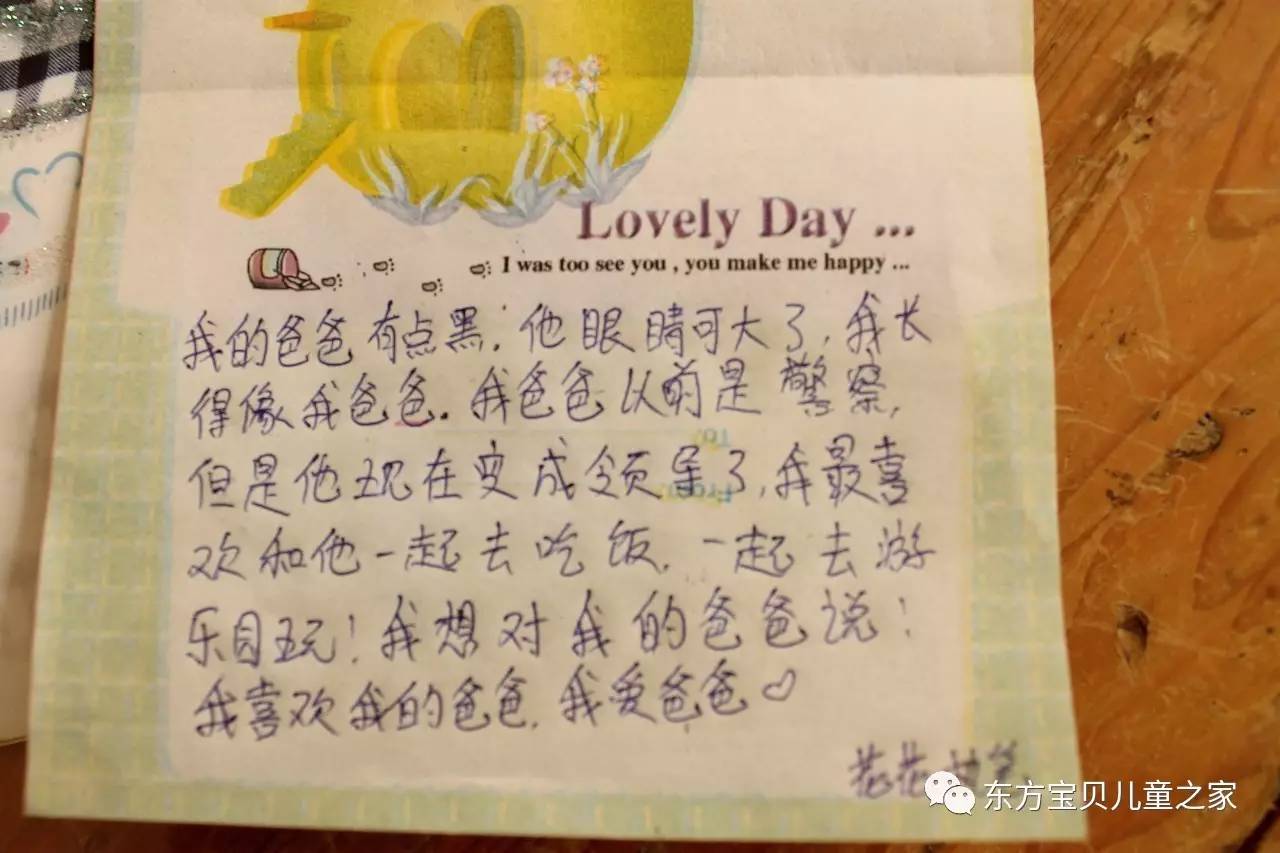 Lovely Day ...
I was too see you , you make me happy ...
我的爸爸有点黑.他眼睛可大了,我长
得像我爸爸.我爸爸以前是警察,
但是他现在变成领导了,我最喜
欢和他一起去吃饭.一起去游
乐目玩!我想对我的爸爸说!
我喜欢我的爸爸.我爱爸爸♡
花花
东方宝贝儿童之家